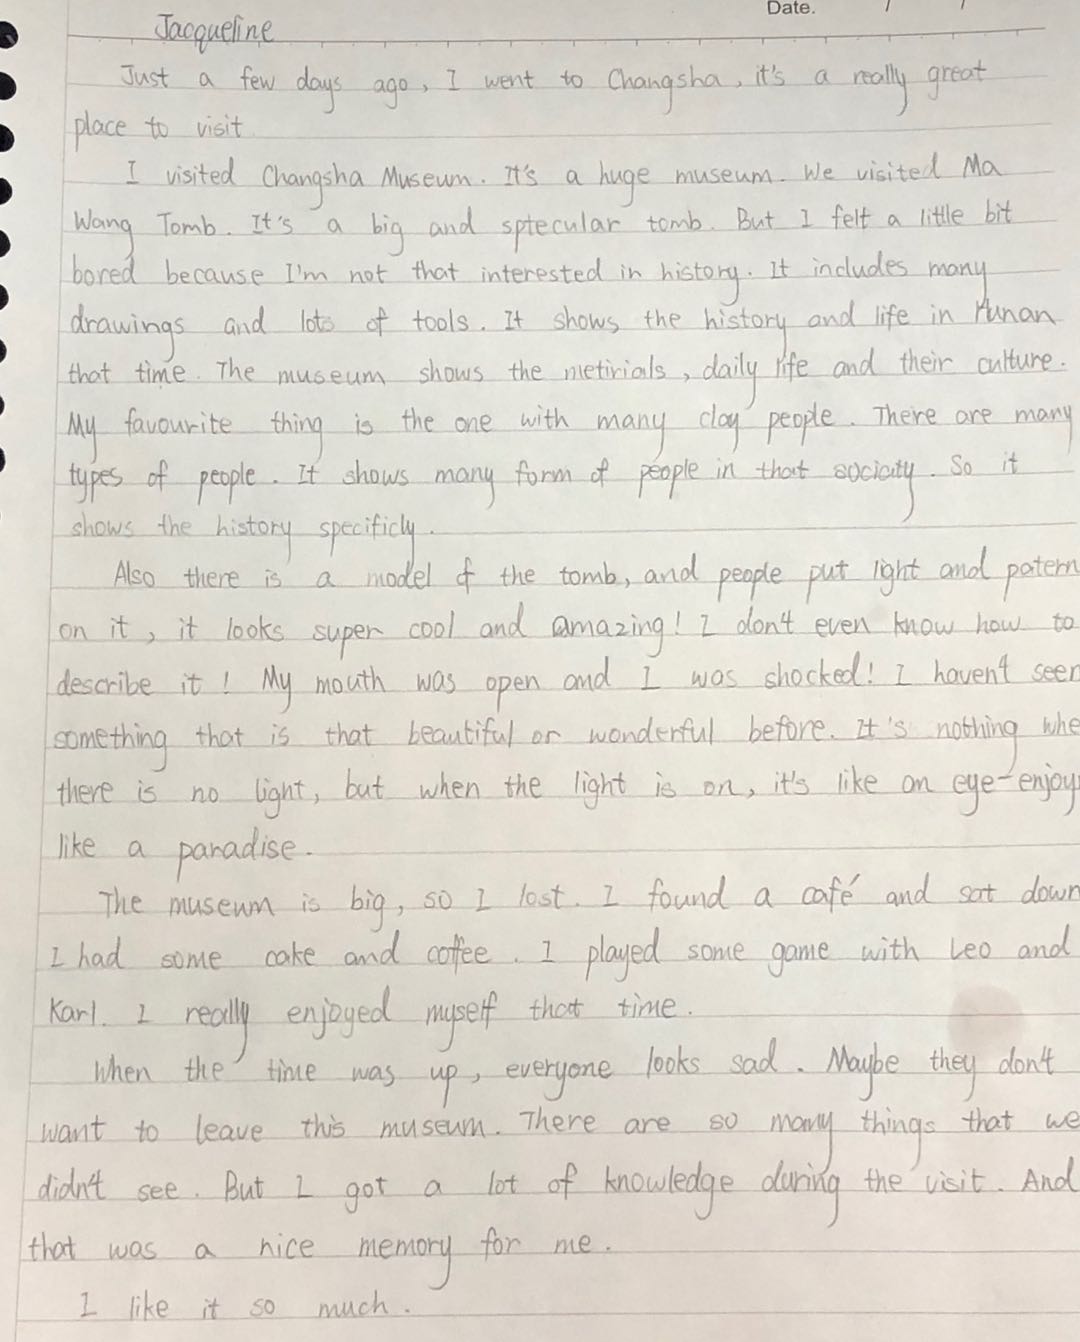 Date. / /
Jacqueline
Just a few days ago, I went to Changsha, it's a really great
place to visit.
I visited Changsha Museum. It's a huge museum. We visited Ma
Wang Tomb. It's a big and sptecular tomb. But I felt a little bit
bored because I'm not that interested in history. It includes many
drawings and lots of tools. It shows the history and life in Hunan
that time. The museum shows the metirials, daily life and their culture.
My favourite thing is the one with many clay people. There are many
types of people. It shows many form of people in that sociaty. So it
shows the history specificly.
Also there is a model of the tomb, and people put light and patern
on it, it looks super cool and amazing! I don't even know how to
describe it! My mouth was open and I was shocked! I haven't seen
something that is that beautiful or wonderful before. It's nothing whe
there is no light, but when the light is on, it's like an eye-enjoy
like a paradise.
The museum is big, so I lost. I found a café and sat down
I had some cake and coffee. I played some game with Leo and
Karl. I really enjoyed myself that time.
When the time was up, everyone looks sad. Maybe they don't
want to leave this museum. There are so many things that we
didn't see. But I got a lot of knowledge during the visit. And
that was a nice memory for me.
I like it so much.